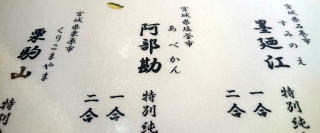 宮城県石巻市
すみのえ
墨廼江
特別純
一合
二合
宮城県塩釜市
あべかん
阿部勘
特別純
一合
二合
宮城県栗原市
くりこまやま
栗駒山
特別